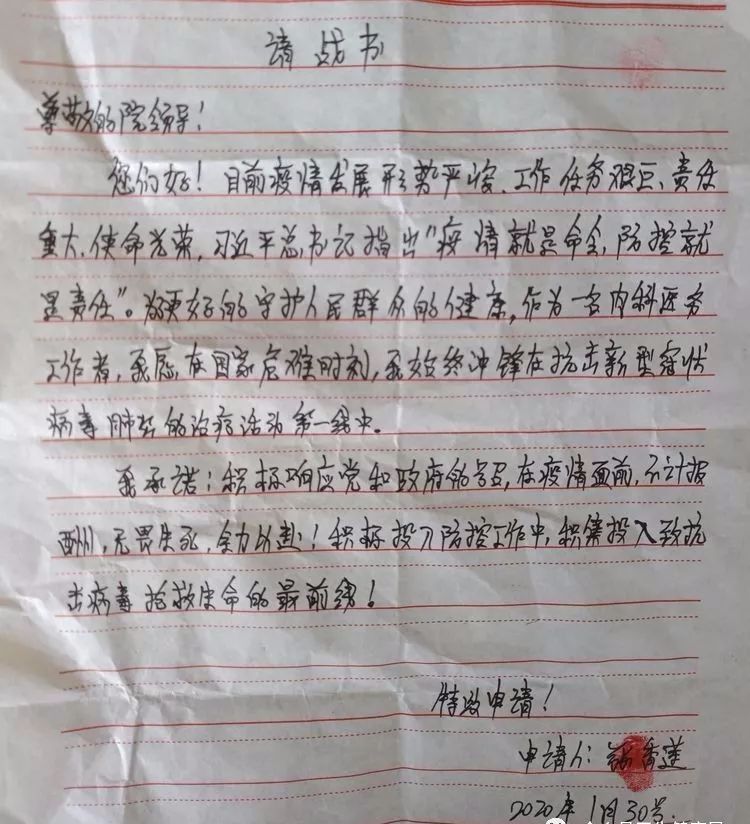 请战书
尊敬的院领导！
您们好！目前疫情发展形势严峻、工作任务艰巨、责任
重大，使命光荣，习近平总书记指出“疫情就是命令，防控就
是责任”。为更好的守护人民群众的健康，作为一名内科医务
工作者，我愿在国家危难时刻，我始终冲锋在抗击新型冠状
病毒肺炎的治疗活动第一线中。
我承诺：积极响应党和政府的号召，在疫情面前，不计报
酬，无畏生死，全力以赴！积极投入防控工作中，积集投入致抗
击病毒抢救生命的最前线！
特致申请！
申请人：香莲
2020年1月30号.